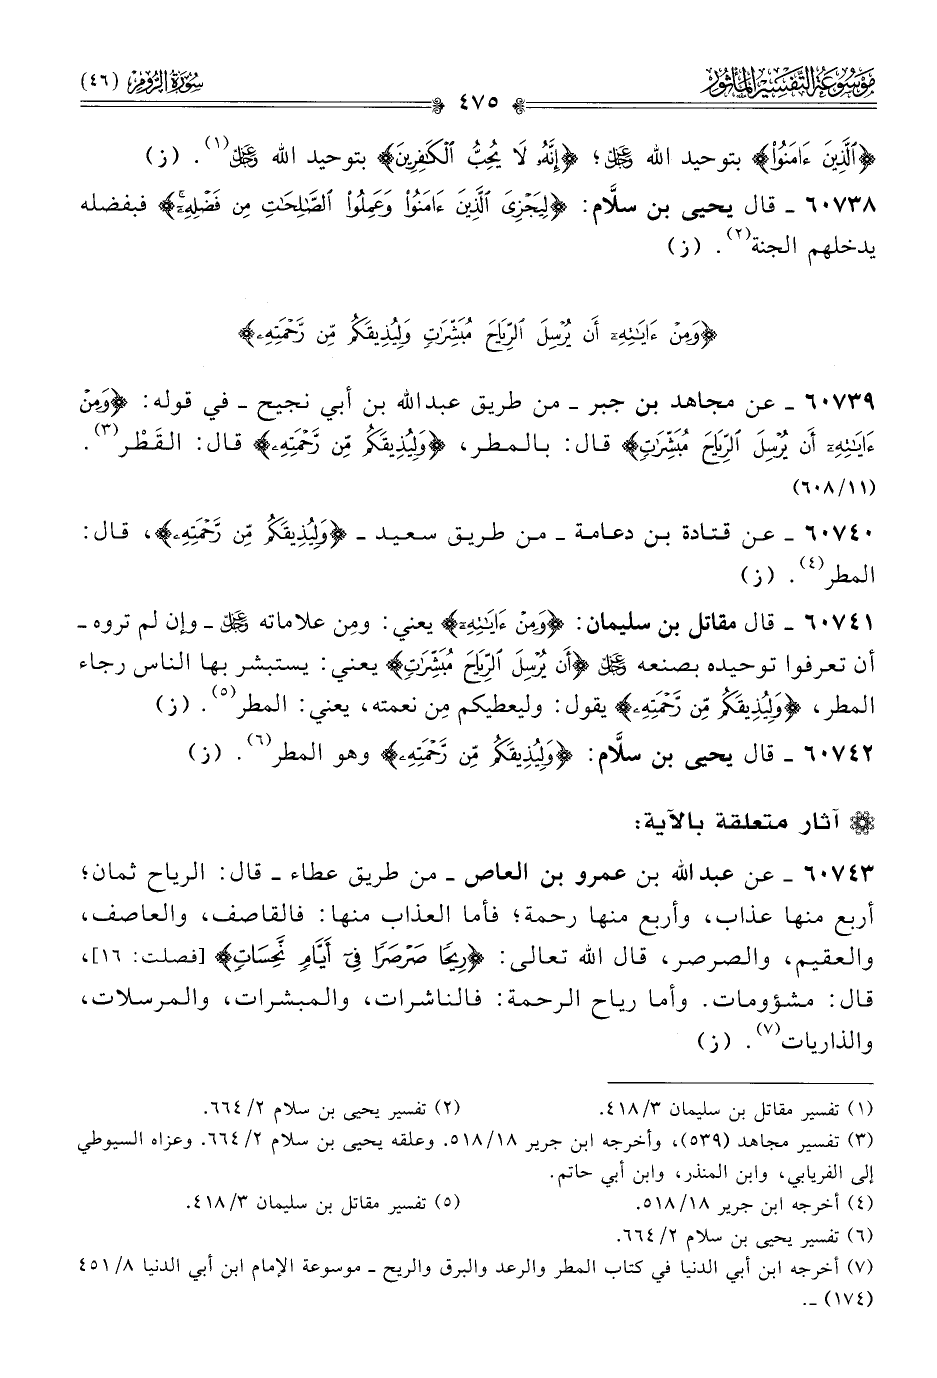 مَوْسُوعَة التَّفْسِيْر المَأْثُور
سُورَةُ الرُّومِ (٤٦)
٤٧٥
﴿ٱلَّذِينَ ءَامَنُواْ﴾ بتوحيد الله ﷿؛ ﴿إِنَّهُۥ لَا يُحِبُّ ٱلْكَٰفِرِينَ﴾ بتوحيد الله ﷿(١). (ز)
٦٠٧٣٨ ـ قال يحيى بن سلَّام: ﴿لِيَجْزِىَ ٱلَّذِينَ ءَامَنُواْ وَعَمِلُواْ ٱلصَّٰلِحَٰتِ مِن فَضْلِهِۦٓ﴾ فبفضله
يدخلهم الجنة(٢). (ز)
﴿وَمِنْ ءَايَٰتِهِۦٓ أَن يُرْسِلَ ٱلرِّيَاحَ مُبَشِّرَٰتٍ وَلِيُذِيقَكُم مِّن رَّحْمَتِهِۦ﴾
٦٠٧٣٩ ـ عن مجاهد بن جبر ـ من طريق عبدالله بن أبي نجيح ـ في قوله: ﴿وَمِنْ
ءَايَٰتِهِۦٓ أَن يُرْسِلَ ٱلرِّيَاحَ مُبَشِّرَٰتٍ﴾ قال: بالمطر، ﴿وَلِيُذِيقَكُم مِّن رَّحْمَتِهِۦ﴾ قال: القَطْر(٣).
(٦٠٨/١١)
٦٠٧٤٠ ـ عن قتادة بن دعامة ـ من طريق سعيد ـ ﴿وَلِيُذِيقَكُم مِّن رَّحْمَتِهِۦ﴾، قال:
المطر(٤). (ز)
٦٠٧٤١ ـ قال مقاتل بن سليمان: ﴿وَمِنْ ءَايَٰتِهِۦٓ﴾ يعني: ومِن علاماته ﷿ ـ وإن لم تروه ـ
أن تعرفوا توحيده بصنعه ﷿ ﴿أَن يُرْسِلَ ٱلرِّيَاحَ مُبَشِّرَٰتٍ﴾ يعني: يستبشر بها الناس رجاء
المطر، ﴿وَلِيُذِيقَكُم مِّن رَّحْمَتِهِۦ﴾ يقول: وليعطيكم مِن نعمته، يعني: المطر(٥). (ز)
٦٠٧٤٢ ـ قال يحيى بن سلَّام: ﴿وَلِيُذِيقَكُم مِّن رَّحْمَتِهِۦ﴾ وهو المطر(٦). (ز)
آثار متعلقة بالآية:
٦٠٧٤٣ ـ عن عبدالله بن عمرو بن العاص ـ من طريق عطاء ـ قال: الرياح ثمان؛
أربع منها عذاب، وأربع منها رحمة؛ فأما العذاب منها: فالقاصف، والعاصف،
والعقيم، والصرصر، قال الله تعالى: ﴿رِيحًا صَرْصَرًا فِىٓ أَيَّامٍ نَّحِسَاتٍ﴾ [فصلت: ١٦]،
قال: مشؤومات. وأما رياح الرحمة: فالناشرات، والمبشرات، والمرسلات،
والذاريات(٧). (ز)
(١) تفسير مقاتل بن سليمان ٤١٨/٣. (٢) تفسير يحيى بن سلام ٦٦٤/٢.
(٣) تفسير مجاهد (٥٣٩)، وأخرجه ابن جرير ٥١٨/١٨. وعلقه يحيى بن سلام ٦٦٤/٢. وعزاه السيوطي
إلى الفريابي، وابن المنذر، وابن أبي حاتم.
(٤) أخرجه ابن جرير ٥١٨/١٨. (٥) تفسير مقاتل بن سليمان ٤١٨/٣.
(٦) تفسير يحيى بن سلام ٦٦٤/٢.
(٧) أخرجه ابن أبي الدنيا في كتاب المطر والرعد والبرق والريح ـ موسوعة الإمام ابن أبي الدنيا ٤٥١/٨
(١٧٤) ـ.